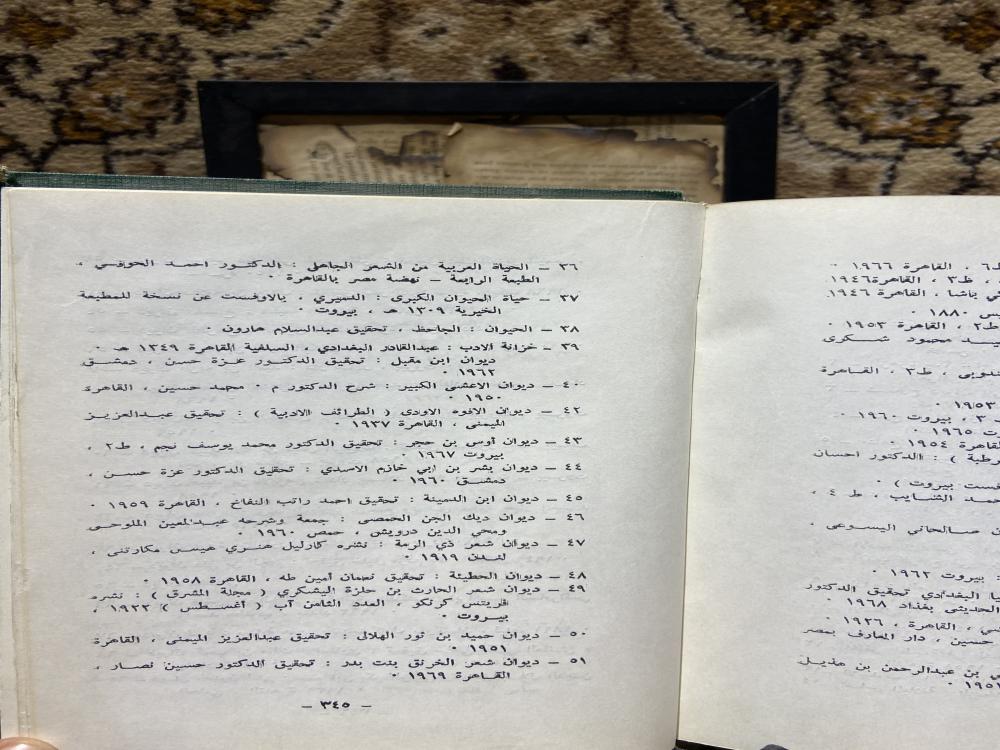 ٣٦ – الحياة العربية من الشعر الجاهلي : الدكتور احمد الحوفي ،
الطبعة الرابعة – نهضة مصر بالقاهرة ٠
٣٧ – حياة الحيوان الكبرى : الدميري ، بالاوفست عن نسخة للمطبعة
الخيرية ١٣٠٩ هـ ، بيروت ٠
٣٨ – الحيوان : الجاحظ ، تحقيق عبدالسلام هارون ٠
٣٩ – خزانة الادب : عبدالقادر البغدادي ، السلفية القاهرة ١٣٤٩ هـ ٠
ديوان ابن مقبل : تحقيق الدكتور عزة حسن ، دمشق
١٩٦٢ ٠
٤٠ – ديوان الاعشى الكبير : شرح الدكتور م ٠ محمد حسين ، القاهرة
١٩٥٠ ٠
٤٢ – ديوان الافوه الاودي ( الطرائف الادبية ) : تحقيق عبدالعزيز
الميمنى ، القاهرة ١٩٣٧ ٠
٤٣ – ديوان أوس بن حجر : تحقيق الدكتور محمد يوسف نجم ، ط٢ ،
بيروت ١٩٦٧ ٠
٤٤ – ديوان بشر بن ابي خازم الاسدي : تحقيق الدكتور عزة حسن ،
دمشق ١٩٦٠ ٠
٤٥ – ديوان ابن الدمينة : تحقيق احمد راتب النفاخ ، القاهرة ١٩٥٩ ٠
٤٦ – ديوان ديك الجن الحمصي : جمعة وشرحه عبدالمعين الملوحي
ومحي الدين درويش ، حمص ١٩٦٠ ٠
٤٧ – ديوان شعر ذي الرمة : نشره كارليل هنري هيس مكارتني ،
لندن ١٩١٩ ٠
٤٨ – ديوان الحطيئة : تحقيق نعمان أمين طه ، القاهرة ١٩٥٨ ٠
٤٩ – ديوان شعر الحارث بن حلزة اليشكري ( مجلة المشرق ) : نشره
فريتس كرنكو ، العدد الثامن آب ( أغسطس ) ١٩٢٢ ،
بيروت ٠
٥٠ – ديوان حميد بن ثور الهلالي : تحقيق عبدالعزيز الميمنى ، القاهرة
١٩٥١ ٠
٥١ – ديوان شعر الخرنق بنت بدر : تحقيق الدكتور حسين نصار ،
القاهرة ١٩٦٩ ٠
– ٣٤٥ –
ط٦ ، القاهرة ١٩٦٦ ٠
، ط٣ ، القاهرة ١٩٤٦
باشا ، القاهرة ١٩٤٦
١٨٨٠ ٠
ط٢ ، القاهرة ١٩٥٣ ٠
محمود شكري
، ط٣ ، القاهرة
١٩٥٣ ٠
٣ ، بيروت ١٩٦٠ ٠
١٩٦٥ ٠
القاهرة ١٩٥٤ ٠
) : الدكتور احسان
بيروت ) ٠
الشايب ، ط ٤ ،
صالحاني اليسوعي ٠
بيروت ١٩٦٢ ٠
البغدادي تحقيق الدكتور
الحديثي بغداد ١٩٦٨ ٠
، القاهرة ، ١٩٣٦ ٠
حسين ، دار المعارف بمصر
بن عبدالرحمن بن هذيل
١٩٥١ ٠